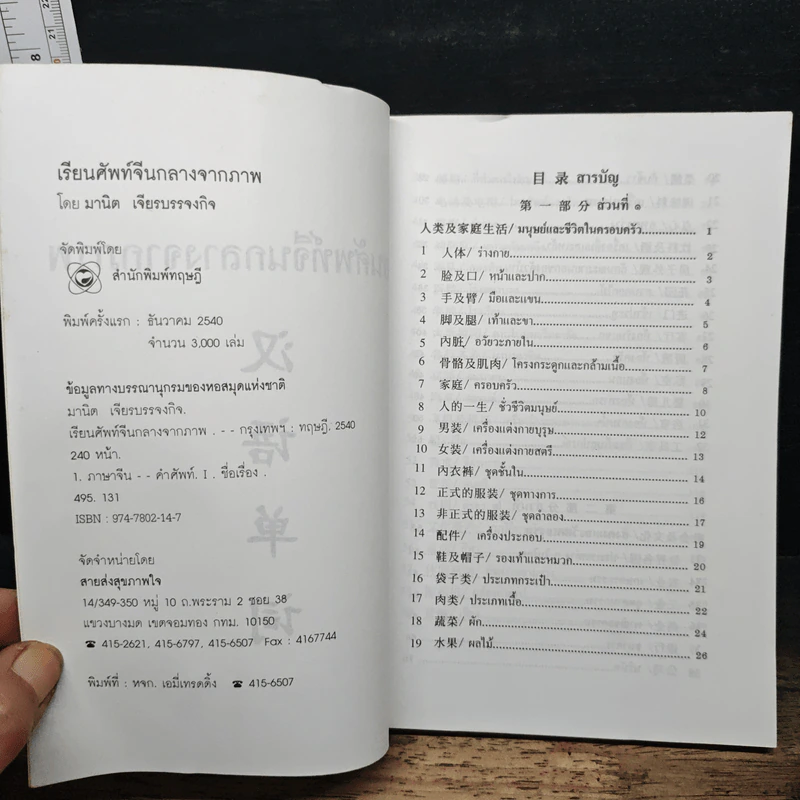 เรียนศัพท์จีนกลางจากภาพ
โดย มานิต เจียรบรรจงกิจ
จัดพิมพ์โดย
สำนักพิมพ์ทฤษฎี
พิมพ์ครั้งแรก : ธันวาคม 2540
จำนวน 3,000 เล่ม
ข้อมูลทางบรรณานุกรมของหอสมุดแห่งชาติ
มานิต เจียรบรรจงกิจ.
เรียนศัพท์จีนกลางจากภาพ . - - กรุงเทพฯ : ทฤษฎี, 2540
240 หน้า.
1. ภาษาจีน - - คำศัพท์. I . ชื่อเรื่อง .
495. 131
ISBN : 974-7802-14-7
จัดจำหน่ายโดย
สายส่งสุขภาพใจ
14/349-350 หมู่ 10 ถ.พระราม 2 ซอย 38
แขวงบางมด เขตจอมทอง กทม. 10150
☎ 415-2621, 415-6797, 415-6507 Fax : 4167744
พิมพ์ที่ : หจก. เอมี่เทรดดิ้ง ☎ 415-6507
目 录 สารบัญ
第 一 部 分 ส่วนที่ ๑
人类及家庭生活/ มนุษย์และชีวิตในครอบครัว............ 1
1 人体/ ร่างกาย............ 2
2 脸及口/ หน้าและปาก............ 3
3 手及臂/ มือและแขน............ 4
4 脚及腿/ เท้าและขา............ 5
5 内脏/ อวัยวะภายใน............ 6
6 骨骼及肌肉/ โครงกระดูกและกล้ามเนื้อ............ 7
7 家庭/ ครอบครัว............ 8
8 人的一生/ ชั่วชีวิตมนุษย์............ 10
9 男装/ เครื่องแต่งกายบุรุษ............ 12
10 女装/ เครื่องแต่งกายสตรี............ 13
11 内衣裤/ ชุดชั้นใน............ 14
12 正式的服装/ ชุดทางการ............ 16
13 非正式的服装/ ชุดลำลอง............ 17
14 配件/ เครื่องประกอบ............ 19
15 鞋及帽子/ รองเท้าและหมวก............ 20
16 袋子类/ ประเภทกระเป๋า............ 21
17 肉类/ ประเภทเนื้อ............ 22
18 蔬菜/ ผัก............ 24
19 水果/ ผลไม้............ 26